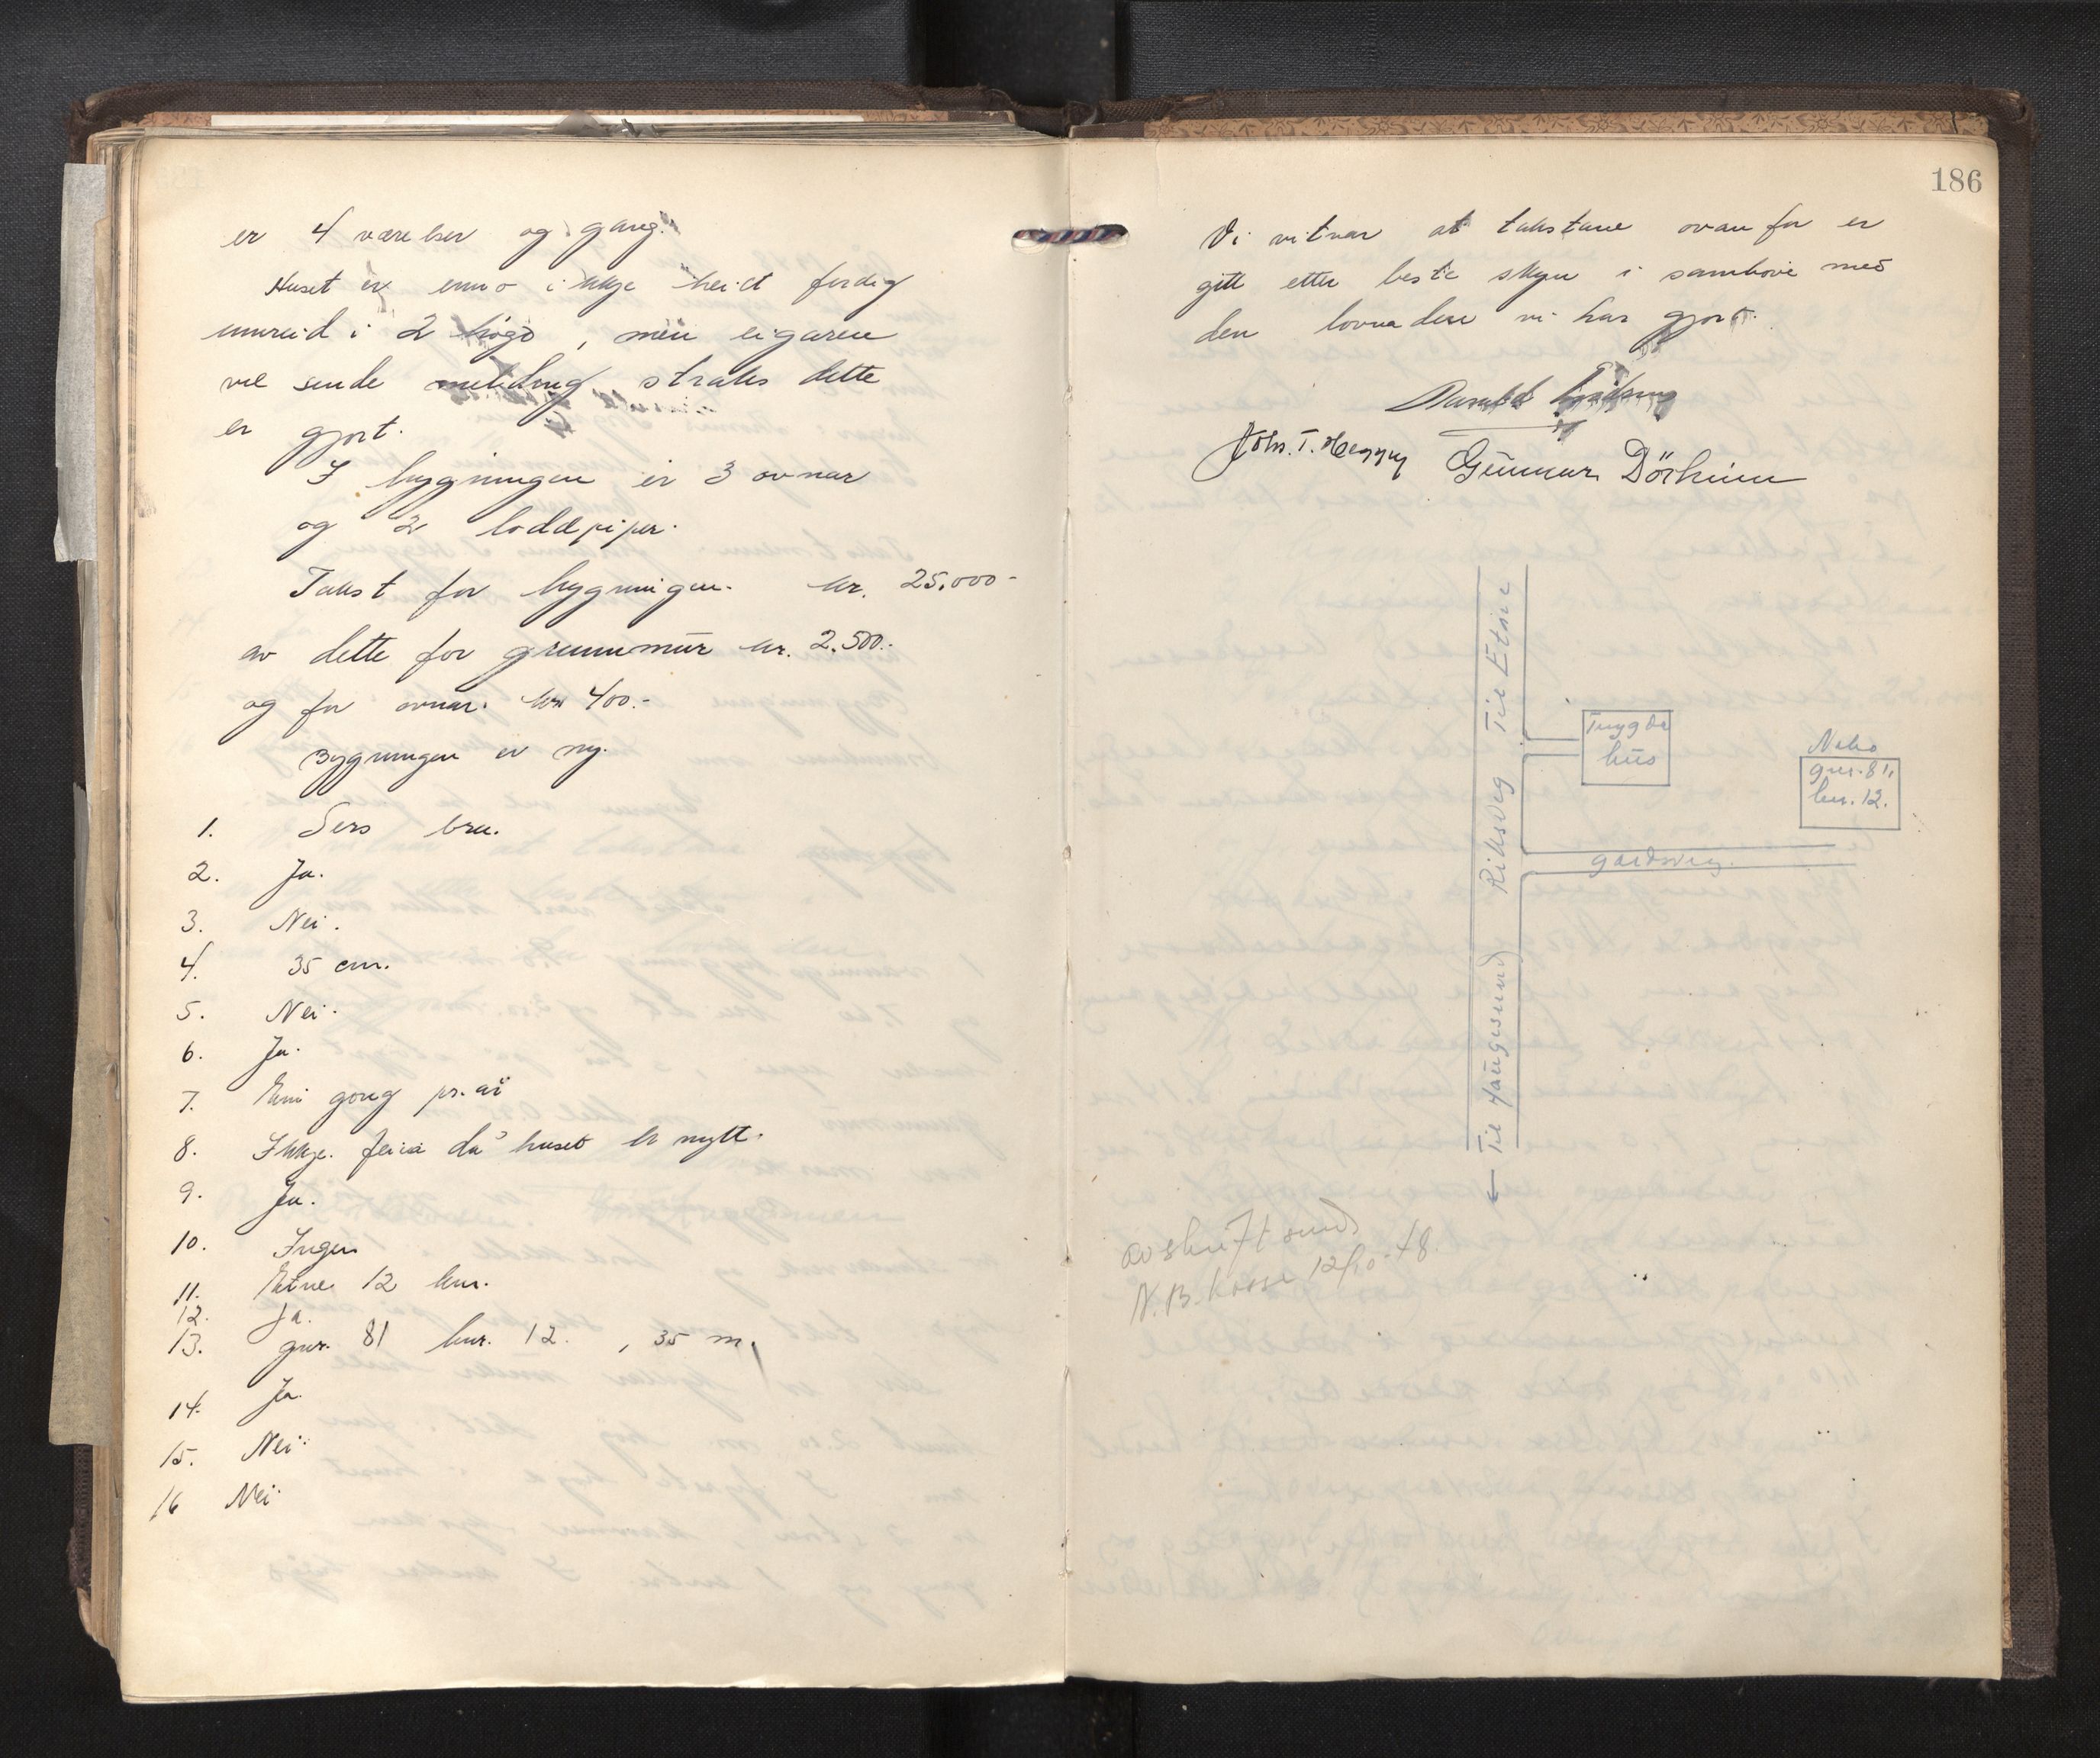 er 4 værelser og gang.
Huset er enno ikkje heidt ferdig
innreid i 2 høgd, men eigaren
vil sende melding straks dette
er gjort.
I bygningen er 3 ovnar
og 2 loddpiper.
Takst for bygningen. kr. 25.000-
av dette for grunnmur kr. 2.500.-
og for ovnar. kr 400.-
Bygningen er ny.
1. Sers bra.
2. Ja.
3. Nei.
4. 35 cm.
5. Nei.
6. Ja.
7. Ein gong pr. år
8. Ikkje feia då huset er nytt.
9. Ja.
10. Ingen
11. Etne 12 km.
12. Ja.
13. gnr. 81 bnr. 12. , 35 m.
14. Ja.
15. Nei.
16 Nei.
186
Vi vitnar at takstane ovanfor er
gitt etter beste skyn i samhøve med
den lovnaden vi har gjort.
Johs. T. Heggen Gunnar Dörheim
Til Etne
Riksveg
Trygde
hus
Nabo
gnr. 81,
bnr. 12.
gardsveg.
← Til Haugesund
avskrift sendt
N.B. kasse 12/10-48.